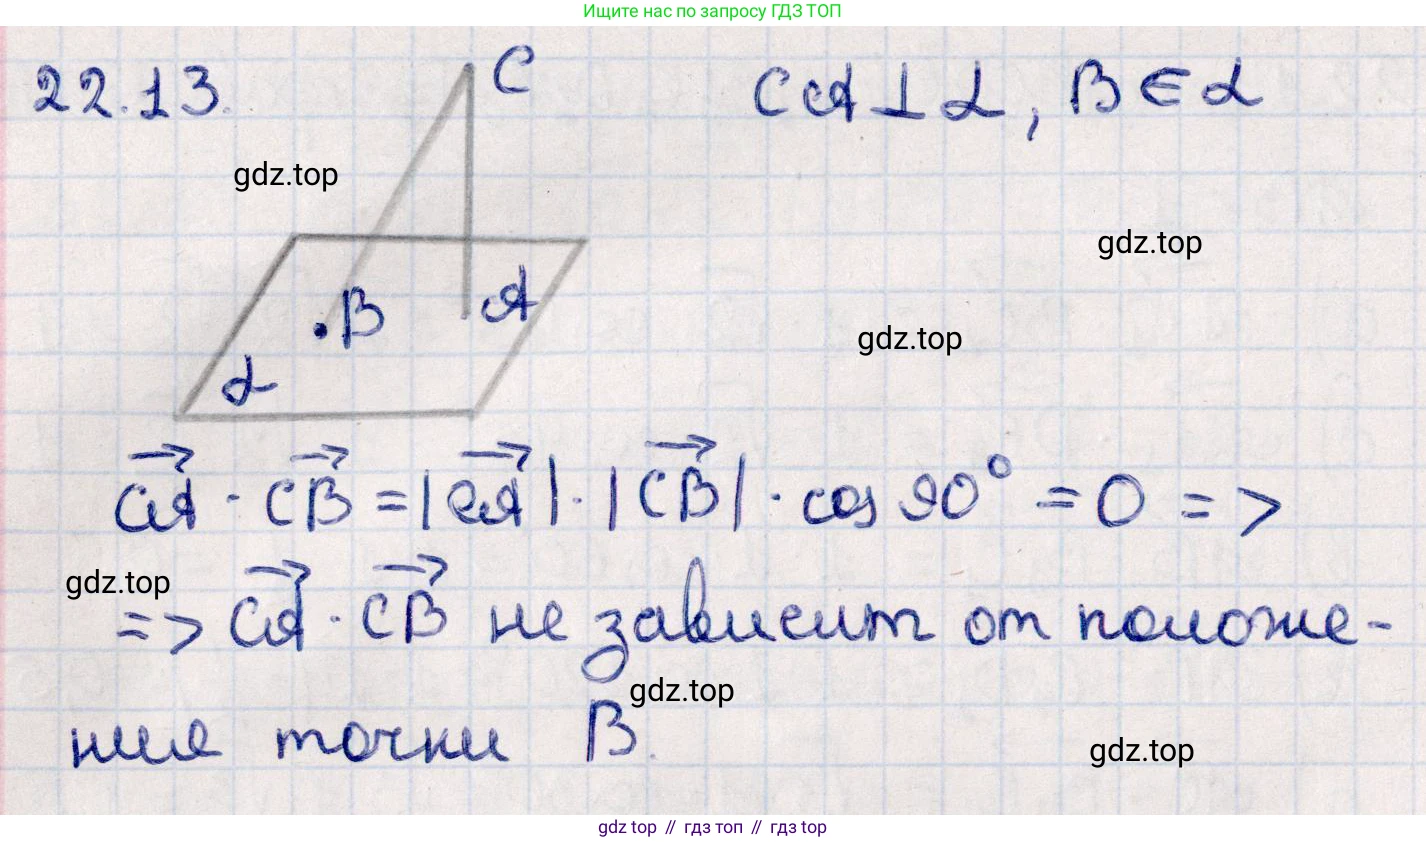 Ищите нас по запросу ГДЗ ТОП
22.13.
C
CA ⊥ α, B ∈ α
gdz.top
gdz.top
A
B
gdz.top
α
CA · CB = |CA| · |CB| · cos 90° = 0 =>
gdz.top
=> CA · CB не зависит от положе-
gdz.top
ния точки B.
gdz.top
gdz top // гдз топ // гдз top